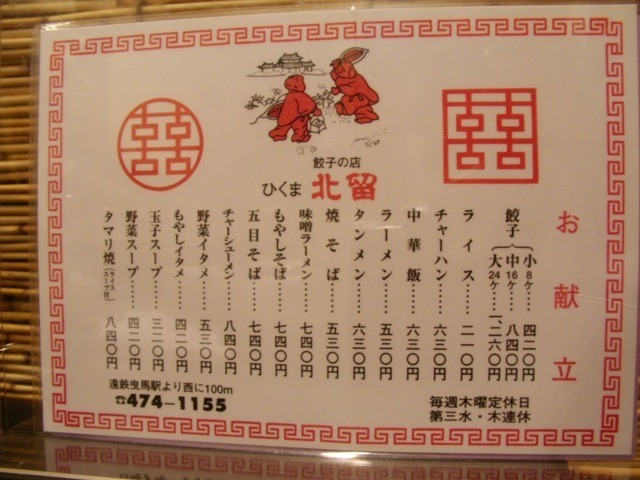 囍
囍
餃子の店
ひくま 北留
お献立
餃子
小 8ケ…… 四二〇円
中 16ケ…… 八四〇円
大 24ケ…… 一、二六〇円
ライス…… 二一〇円
チャーハン…… 六三〇円
中華飯…… 六三〇円
ラーメン…… 五三〇円
タンメン…… 六三〇円
焼そば…… 五三〇円
味噌ラーメン…… 七四〇円
もやしそば…… 七四〇円
五目そば…… 七四〇円
チャーシューメン…… 八四〇円
野菜イタメ…… 五三〇円
もやしイタメ…… 四二〇円
玉子スープ…… 三二〇円
野菜スープ…… 四二〇円
タマリ焼(ライス スープ付)…… 八四〇円
遠鉄曳馬駅より西に100m
☎474-1155
毎週木曜定休日
第三水・木連休